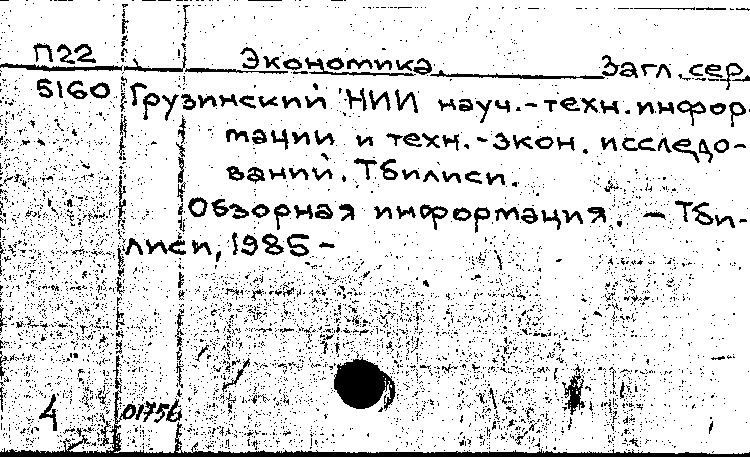 П22 Экономика. Загл. сер.
5160 Грузинский НИИ науч.-техн. инфор-
мации и техн.-экон. исследо-
ваний. Тбилиси.
Обзорная информация. - Тби-
лиси, 1985 -
4 01756